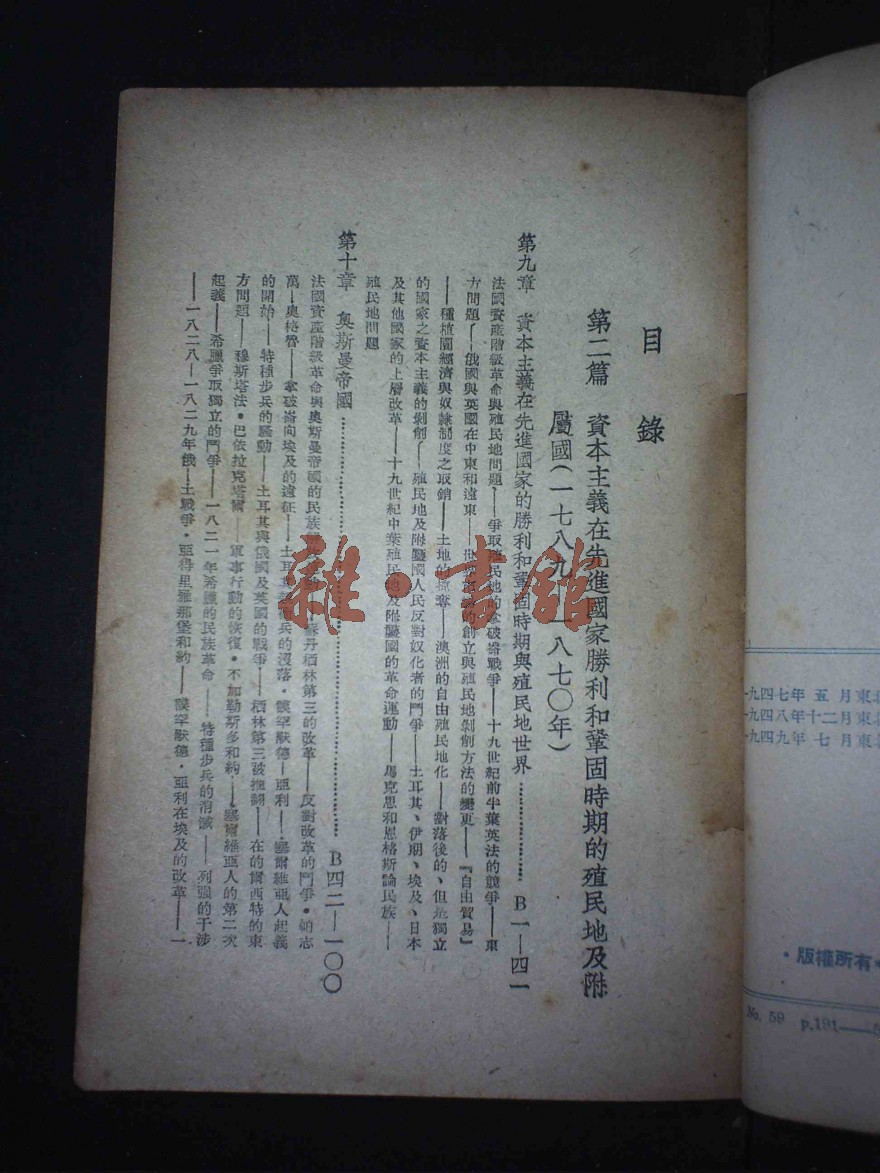 目錄
第二篇 資本主義在先進國家勝利和鞏固時期的殖民地及附
屬國(一七八九—一八七〇年)
第九章 資本主義在先進國家的勝利和鞏固時期與殖民地世界…………B一—四一
法國資產階級革命與殖民地問題——爭取殖民地的拿破崙戰爭——十九世紀前半葉英法的競爭——東
方問題——俄國與英國在中東和遠東——世界市場的創立與殖民地剝削方法的變更——『自由貿易』
——種植園經濟與奴隸制度之取銷——土地的掠奪——澳洲的自由殖民地化——對落後的、但是獨立
的國家之資本主義的剝削——殖民地及附屬國人民反對奴化者的鬥爭——土耳其、伊朗、埃及、日本
及其他國家的上層改革——十九世紀中葉殖民地及附屬國的革命運動——馬克思和恩格斯論民族——
殖民地問題
第十章 奧斯曼帝國…………B四二—一〇〇
法國資產階級革命與奧斯曼帝國的民族 蘇丹栖林第三的改革——反對改革的鬥爭·帕志
萬—奧格魯——拿破崙向埃及的遠征——土耳其 兵的沒落·謨罕默德—亞利——塞爾維亞人起義
的開始——特種步兵的騷動——土耳其與俄國及英國的戰爭——栖林第三被推翻——在的爾西特的東
方問題——穆斯塔法·巴依拉克塔爾——軍事行動的恢復·不加勒斯多和約——塞爾維亞人的第二次
起義——希臘爭取獨立的鬥爭——一八二一年希臘的民族革命——特種步兵的消滅——列强的干涉
——一八二八—一八二九年俄—土戰爭·亞得里雅那堡和約——謨罕默德·亞利在埃及的改革——一
雜·書館
一九四七年 五 月東北
一九四八年十二月東
一九四九年 七 月東
·版權所有·
No. 59 p.191——5